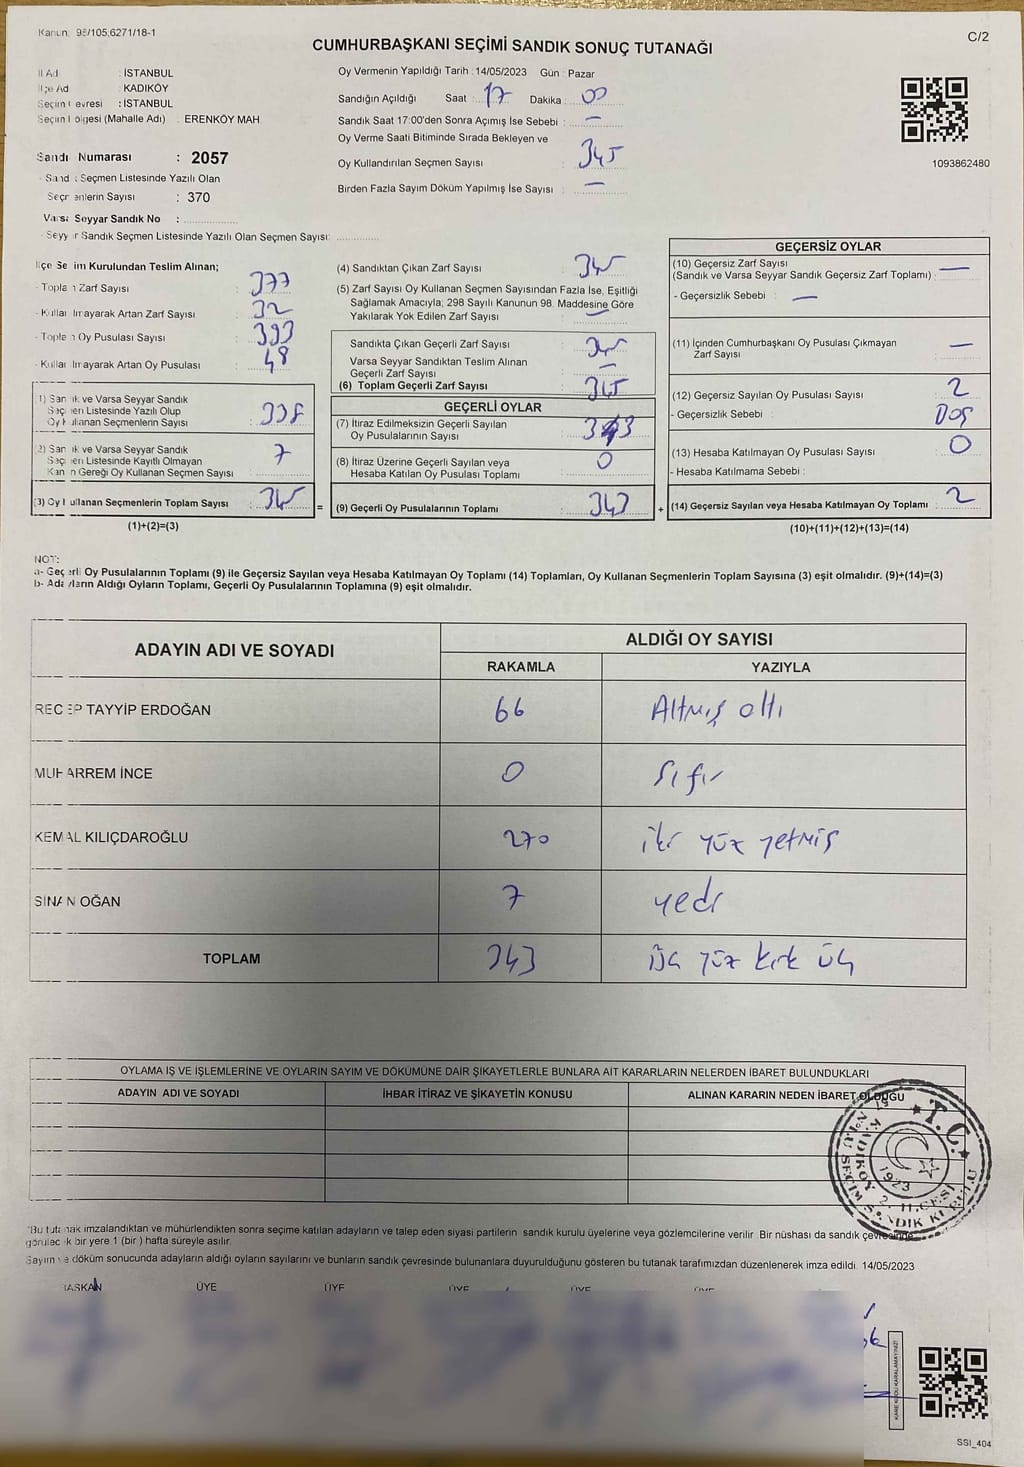 Kanun: 98/105;6271/18-1
C/2
CUMHURBAŞKANI SEÇİMİ SANDIK SONUÇ TUTANAĞI
İl Adı : İSTANBUL
İlçe Adı : KADIKÖY
Seçim Çevresi : İSTANBUL
Seçim Bölgesi (Mahalle Adı) : ERENKÖY MAH.
Sandık Numarası : 2057
- Sandık Seçmen Listesinde Yazılı Olan
Seçmenlerin Sayısı : 370
Varsa Seyyar Sandık No :
- Seyyar Sandık Seçmen Listesinde Yazılı Olan Seçmen Sayısı:
Oy Vermenin Yapıldığı Tarih : 14/05/2023 Gün : Pazar
Sandığın Açıldığı Saat : 17 Dakika : 00
Sandık Saat 17:00'den Sonra Açımış İse Sebebi : —
Oy Verme Saati Bitiminde Sırada Bekleyen ve
Oy Kullandırılan Seçmen Sayısı : 345
Birden Fazla Sayım Döküm Yapılmış İse Sayısı : —
1093862480
İlçe Seçim Kurulundan Teslim Alınan;
- Toplam Zarf Sayısı : 377
- Kullanılmayarak Artan Zarf Sayısı : 32
- Toplam Oy Pusulası Sayısı : 393
- Kullanılmayarak Artan Oy Pusulası : 48
1) Sandık ve Varsa Seyyar Sandık
Seçmen Listesinde Yazılı Olup
Oy Kullanan Seçmenlerin Sayısı : 338
2) Sandık ve Varsa Seyyar Sandık
Seçmen Listesinde Kayıtlı Olmayan
Kanun Gereği Oy Kullanan Seçmen Sayısı : 7
(3) Oy Kullanan Seçmenlerin Toplam Sayısı : 345 =
(1)+(2)=(3)
(4) Sandıktan Çıkan Zarf Sayısı : 345
(5) Zarf Sayısı Oy Kullanan Seçmen Sayısından Fazla İse, Eşitliği
Sağlamak Amacıyla; 298 Sayılı Kanunun 98. Maddesine Göre
Yakılarak Yok Edilen Zarf Sayısı : —
Sandıkta Çıkan Geçerli Zarf Sayısı : 345
Varsa Seyyar Sandıktan Teslim Alınan
Geçerli Zarf Sayısı : —
(6) Toplam Geçerli Zarf Sayısı : 345
GEÇERLİ OYLAR
(7) İtiraz Edilmeksizin Geçerli Sayılan
Oy Pusulalarının Sayısı : 343
(8) İtiraz Üzerine Geçerli Sayılan veya
Hesaba Katılan Oy Pusulası Toplamı : 0
(9) Geçerli Oy Pusulalarının Toplamı : 343 +
GEÇERSİZ OYLAR
(10) Geçersiz Zarf Sayısı
(Sandık ve Varsa Seyyar Sandık Geçersiz Zarf Toplamı) : —
- Geçersizlik Sebebi : —
(11) İçinden Cumhurbaşkanı Oy Pusulası Çıkmayan
Zarf Sayısı : —
(12) Geçersiz Sayılan Oy Pusulası Sayısı : 2
- Geçersizlik Sebebi : Boş
(13) Hesaba Katılmayan Oy Pusulası Sayısı : 0
- Hesaba Katılmama Sebebi :
(14) Geçersiz Sayılan veya Hesaba Katılmayan Oy Toplamı : 2
(10)+(11)+(12)+(13)=(14)
NOT:
a- Geçerli Oy Pusulalarının Toplamı (9) ile Geçersiz Sayılan veya Hesaba Katılmayan Oy Toplamı (14) Toplamları, Oy Kullanan Seçmenlerin Toplam Sayısına (3) eşit olmalıdır. (9)+(14)=(3)
b- Adayların Aldığı Oyların Toplamı, Geçerli Oy Pusulalarının Toplamına (9) eşit olmalıdır.
ADAYIN ADI VE SOYADI ALDIĞI OY SAYISI
RAKAMLA YAZIYLA
RECEP TAYYİP ERDOĞAN 66 Altmış altı
MUHARREM İNCE 0 Sıfır
KEMAL KILIÇDAROĞLU 270 iki yüz yetmiş
SİNAN OĞAN 7 yedi
TOPLAM 343 üç yüz kırk üç
OYLAMA İŞ VE İŞLEMLERİNE VE OYLARIN SAYIM VE DÖKÜMÜNE DAİR ŞİKAYETLERLE BUNLARA AİT KARARLARIN NELERDEN İBARET BULUNDUKLARI
ADAYIN ADI VE SOYADI İHBAR İTİRAZ VE ŞİKAYETİN KONUSU ALINAN KARARIN NEDEN İBARET OLDUĞU
T.C.
KADIKÖY 2. İLÇESİ
1923
NO.LU SEÇİM SANDIK KURULU
*Bu tutanak imzalandıktan ve mühürlendikten sonra seçime katılan adayların ve talep eden siyasi partilerin sandık kurulu üyelerine veya gözlemcilerine verilir. Bir nüshası da sandık çevresinde
görülecek bir yere 1 (bir) hafta süreyle asılır.
Sayım ve döküm sonucunda adayların aldığı oyların sayılarını ve bunların sandık çevresinde bulunanlara duyurulduğunu gösteren bu tutanak tarafımızdan düzenlenerek imza edildi. 14/05/2023
BAŞKAN ÜYE ÜYE ÜYE ÜYE ÜYE
KARE KODU KARALAMAYINIZ!
SSI_404